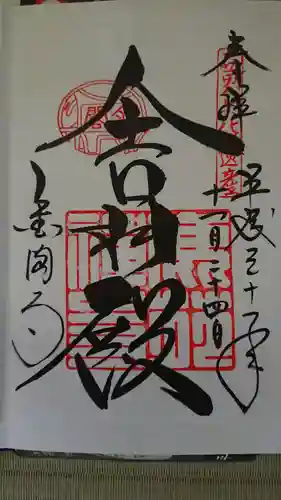 奉拝
平成三十年
十一月二十四日
舎利殿
金閣寺